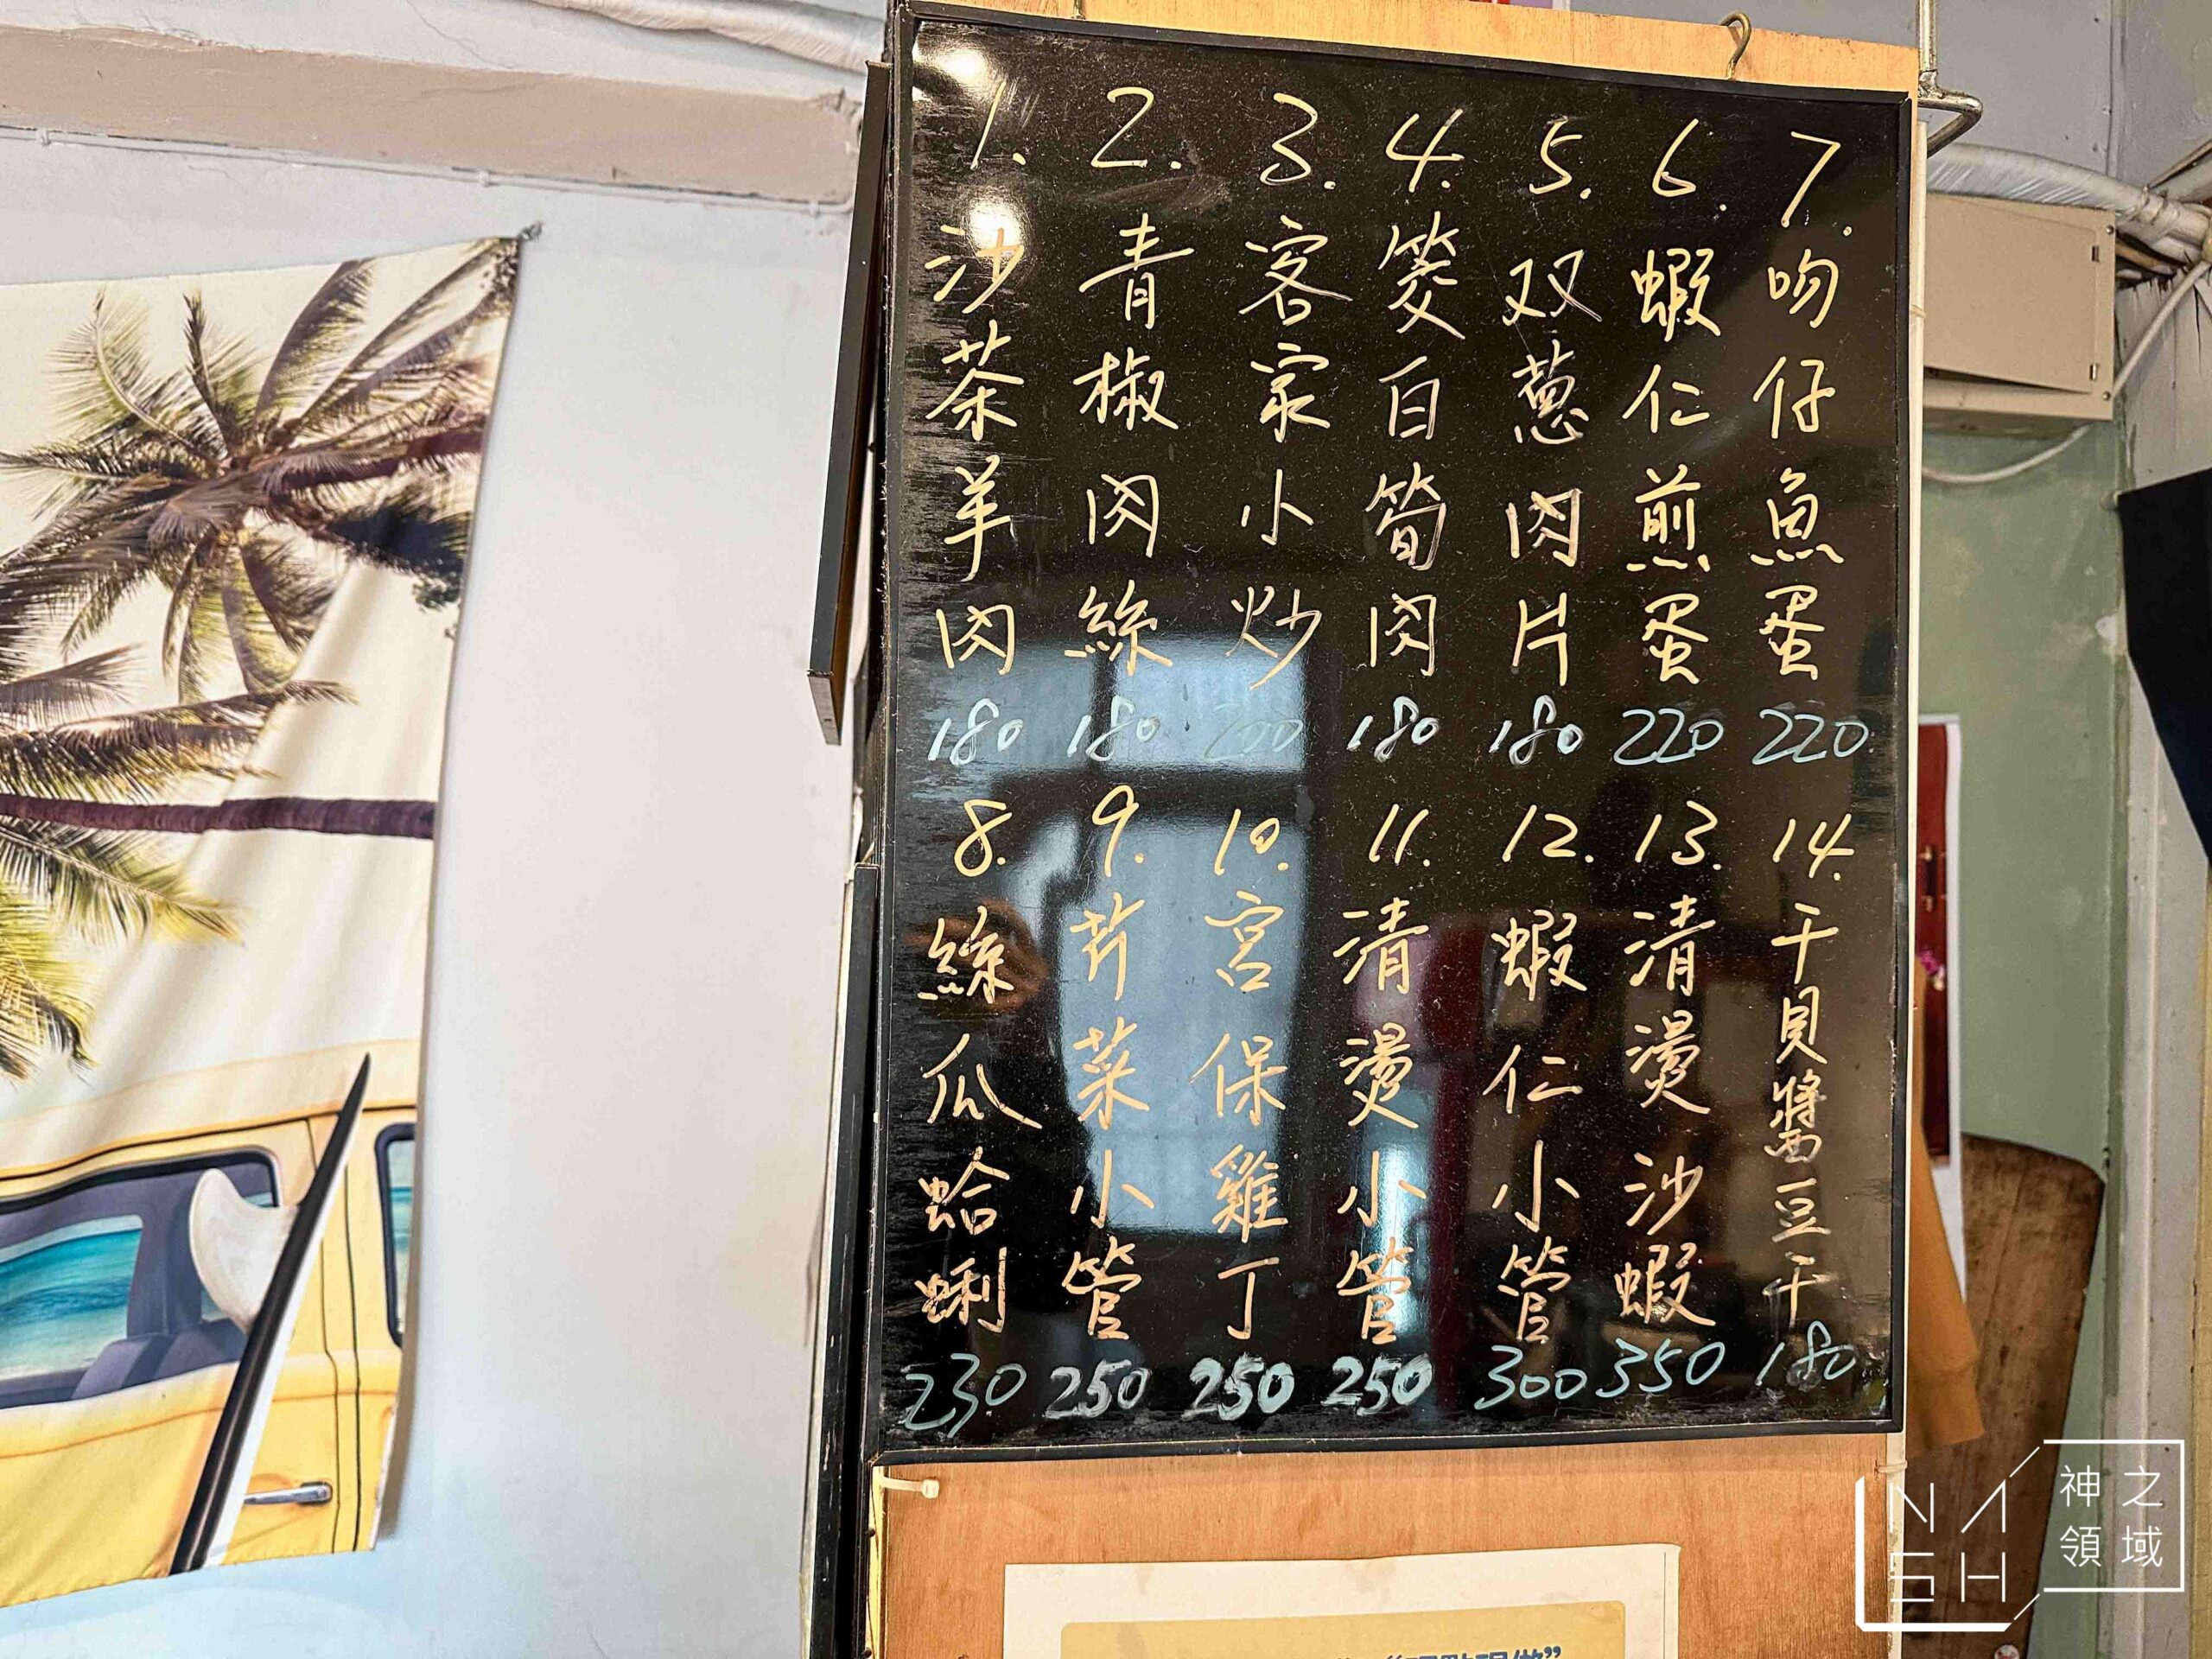 1.
沙茶羊肉
180
2.
青椒肉絲
180
3.
客家小炒
200
4.
筊白筍肉
180
5.
双蔥肉片
180
6.
蝦仁煎蛋
220
7.
吻仔魚蛋
220
8.
絲瓜蛤蜊
230
9.
芹菜小管
250
10.
宮保雞丁
250
11.
清燙小管
250
12.
蝦仁小管
300
13.
清燙沙蝦
350
14.
干貝醬豆干
180
NASH
神之領域